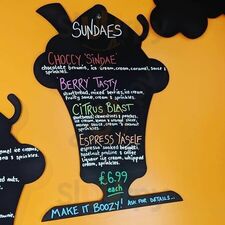 SUNDAES
CHOCCY 'SiNDAE'
chocolate brownie, ice cream, cream, caramel, sauce &
sprinkles.
BERRY TASTY
shortbread, mixed berries, ice cream,
fruity sauce, cream & sprinkles.
CITRUS BLAST
shortbread, clementines & peaches,
ice cream, lemon & orange
sauce, cream &
sprinkles.
ESPRESS YASELF
espresso soaked brownie,
hazelnut praline & coffee
liqueur ice cream, whipped
cream, sprinkles.
£6.99
each
MAKE IT BOOZY! ASK FOR DETAILS...